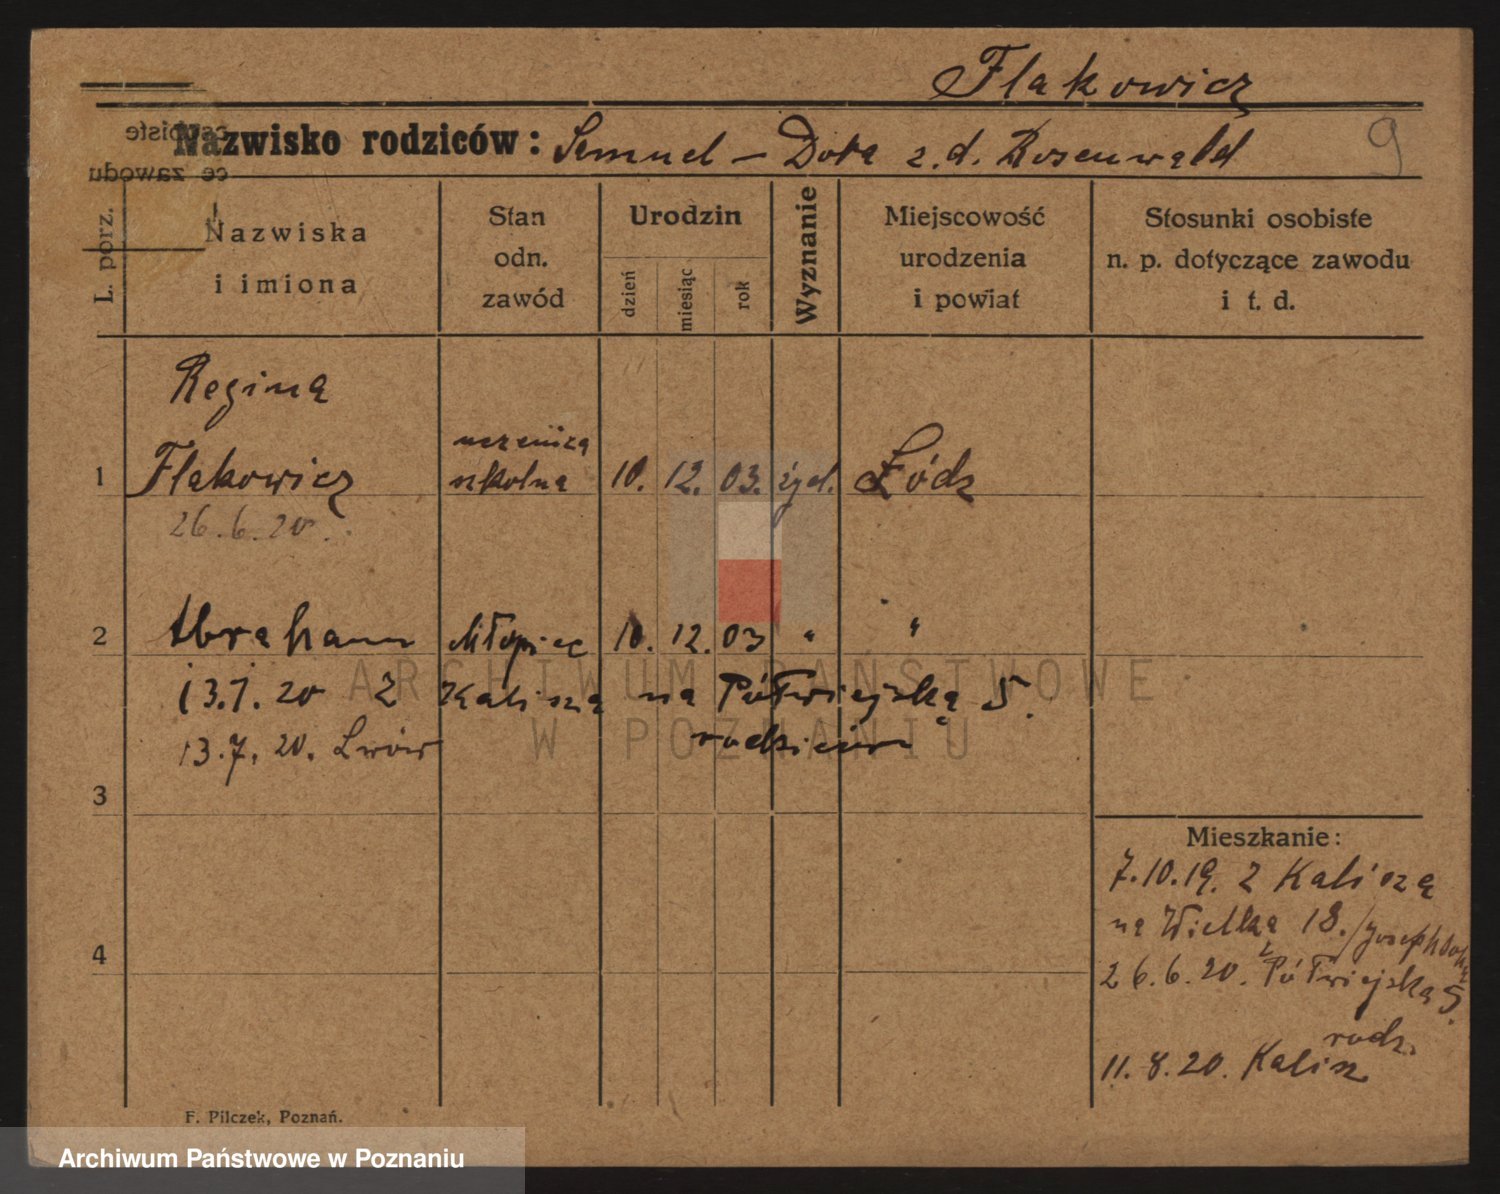 Flakowicz
Nazwisko rodziców: Samuel – Dora z. d. Rosenwald
9
L. porz.
Nazwiska
i imiona
Stan
odn.
zawód
Urodzin
dzień
miesiąc
rok
Wyznanie
Miejscowość
urodzenia
i powiat
Stosunki osobiste
n. p. dotyczące zawodu
i t. d.
Regina
1 Flakowicz uczenica szkolna 10. 12. 03. żyd. Łódz
26.6.20.
2 Abraham chłopiec 10. 12. 03 " "
13.7.20 z Kalisza na Półwiejską 5.
13.7.20. Lwów rodziców
3
4
Mieszkanie:
7.10.19. z Kalisza
na Wielka 18. /
26.6.20. Półwiejska 5.
rodz.
11.8.20. Kalisz
F. Pilczek, Poznań.
ARCHIWUM PAŃSTWOWE
W POZNANIU
Archiwum Państwowe w Poznaniu